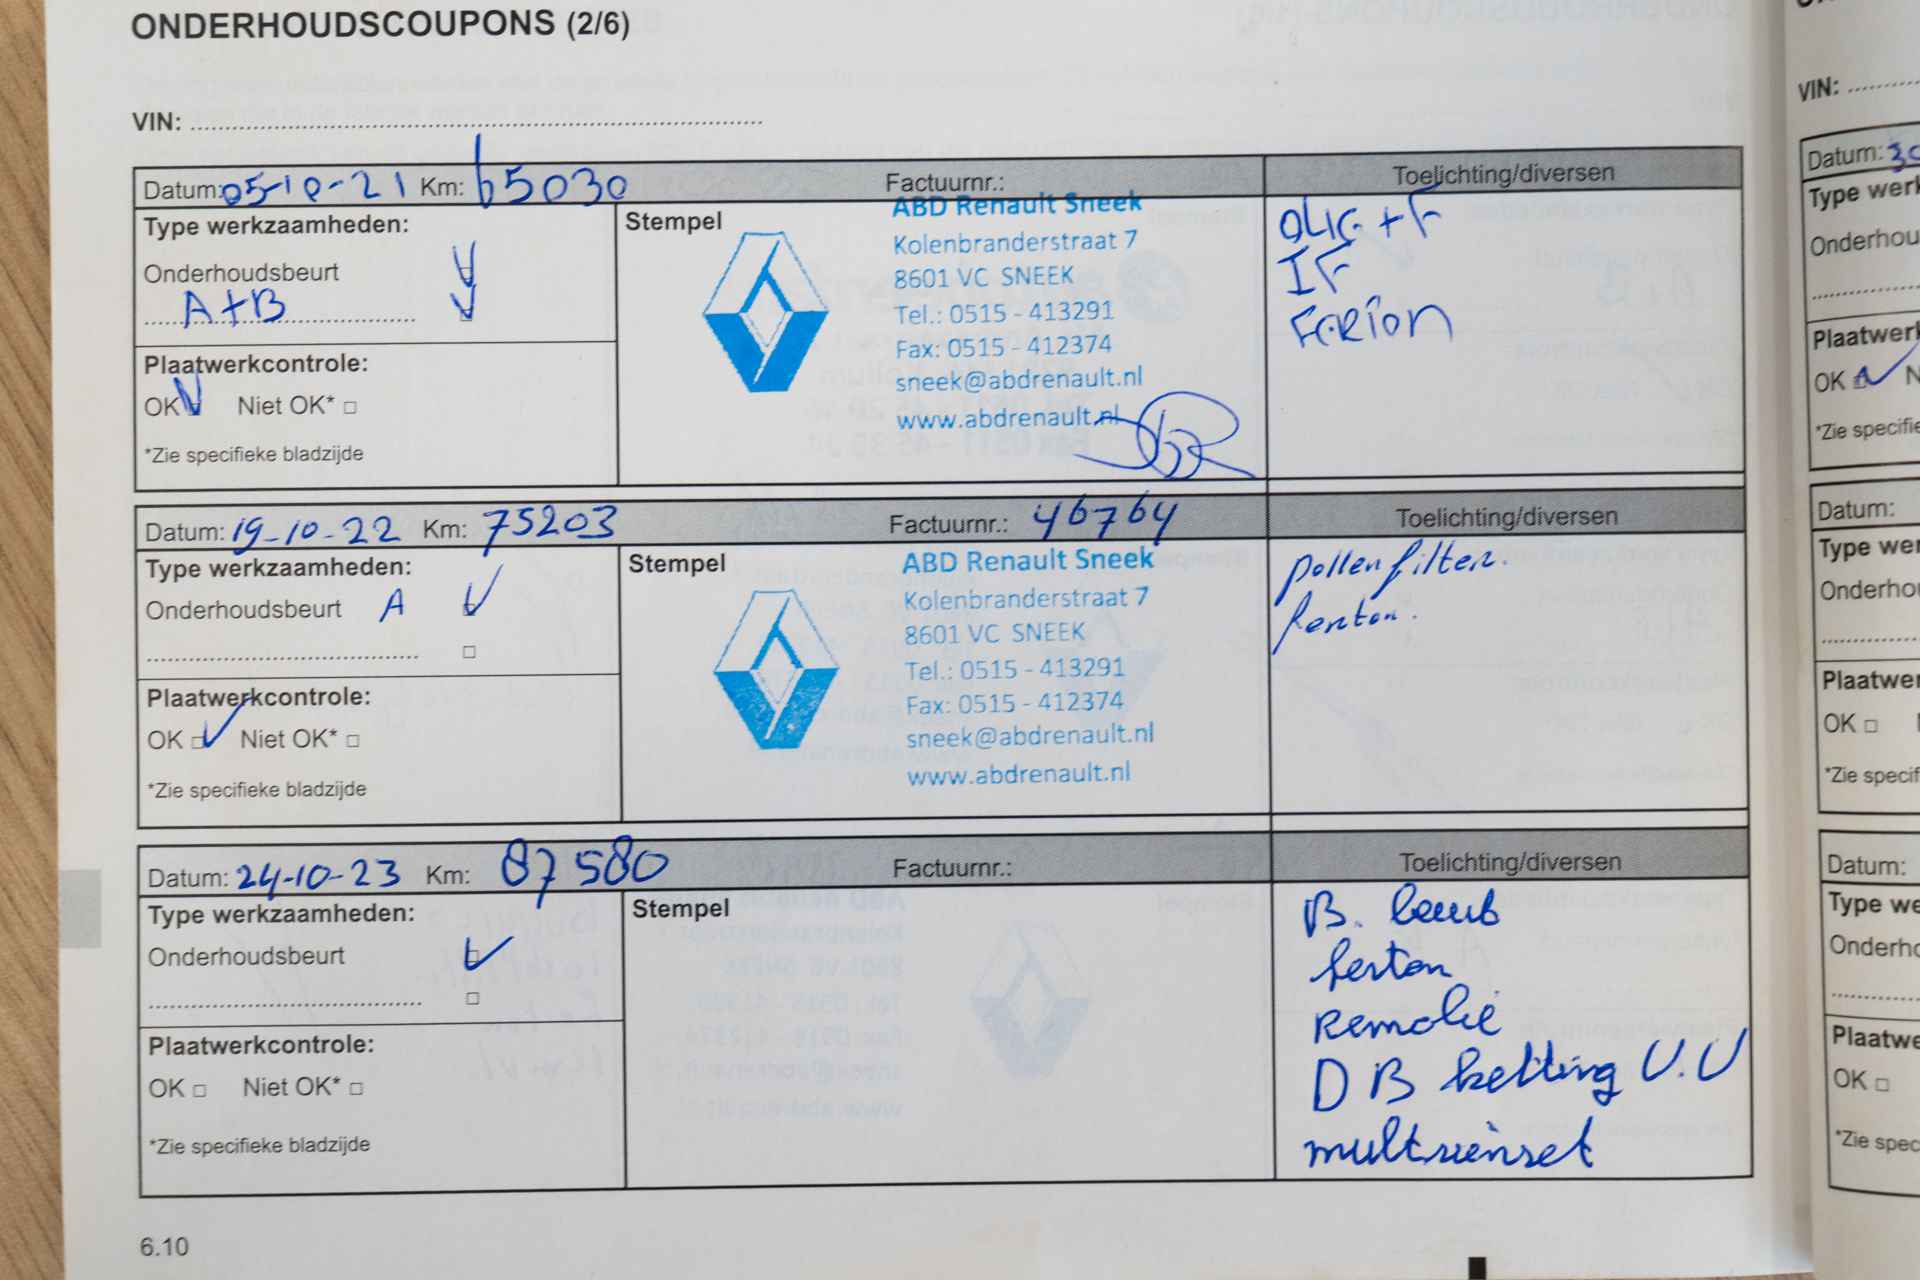 ONDERHOUDSCOUPONS (2/6)
VIN:
Datum: 05-10-21 Km: 65030 Factuurnr.: Toelichting/diversen
Type werkzaamheden:
Onderhoudsbeurt
A+B
Plaatwerkcontrole:
OK Niet OK*
*Zie specifieke bladzijde
Stempel
ABD Renault Sneek
Kolenbranderstraat 7
8601 VC SNEEK
Tel.: 0515 - 413291
Fax: 0515 - 412374
sneek@abdrenault.nl
www.abdrenault.nl
+ F
IF
Datum: 19-10-22 Km: 75203 Factuurnr.: 46764 Toelichting/diversen
Type werkzaamheden:
Onderhoudsbeurt A
Plaatwerkcontrole:
OK Niet OK*
*Zie specifieke bladzijde
Stempel
ABD Renault Sneek
Kolenbranderstraat 7
8601 VC SNEEK
Tel.: 0515 - 413291
Fax: 0515 - 412374
sneek@abdrenault.nl
www.abdrenault.nl
pollenfilter.
Datum: 24-10-23 Km: 87580 Factuurnr.: Toelichting/diversen
Type werkzaamheden:
Onderhoudsbeurt
Plaatwerkcontrole:
OK Niet OK*
*Zie specifieke bladzijde
Stempel
B.
DB ketting V.V
6.10
VIN:
Datum: 30
Type werk
Onderhou
Plaatwerk
OK N
*Zie specifie
Datum:
Type wer
Onderho
Plaatwer
OK
*Zie specif
Datum:
Type we
Onderho
Plaatwe
OK
*Zie spec